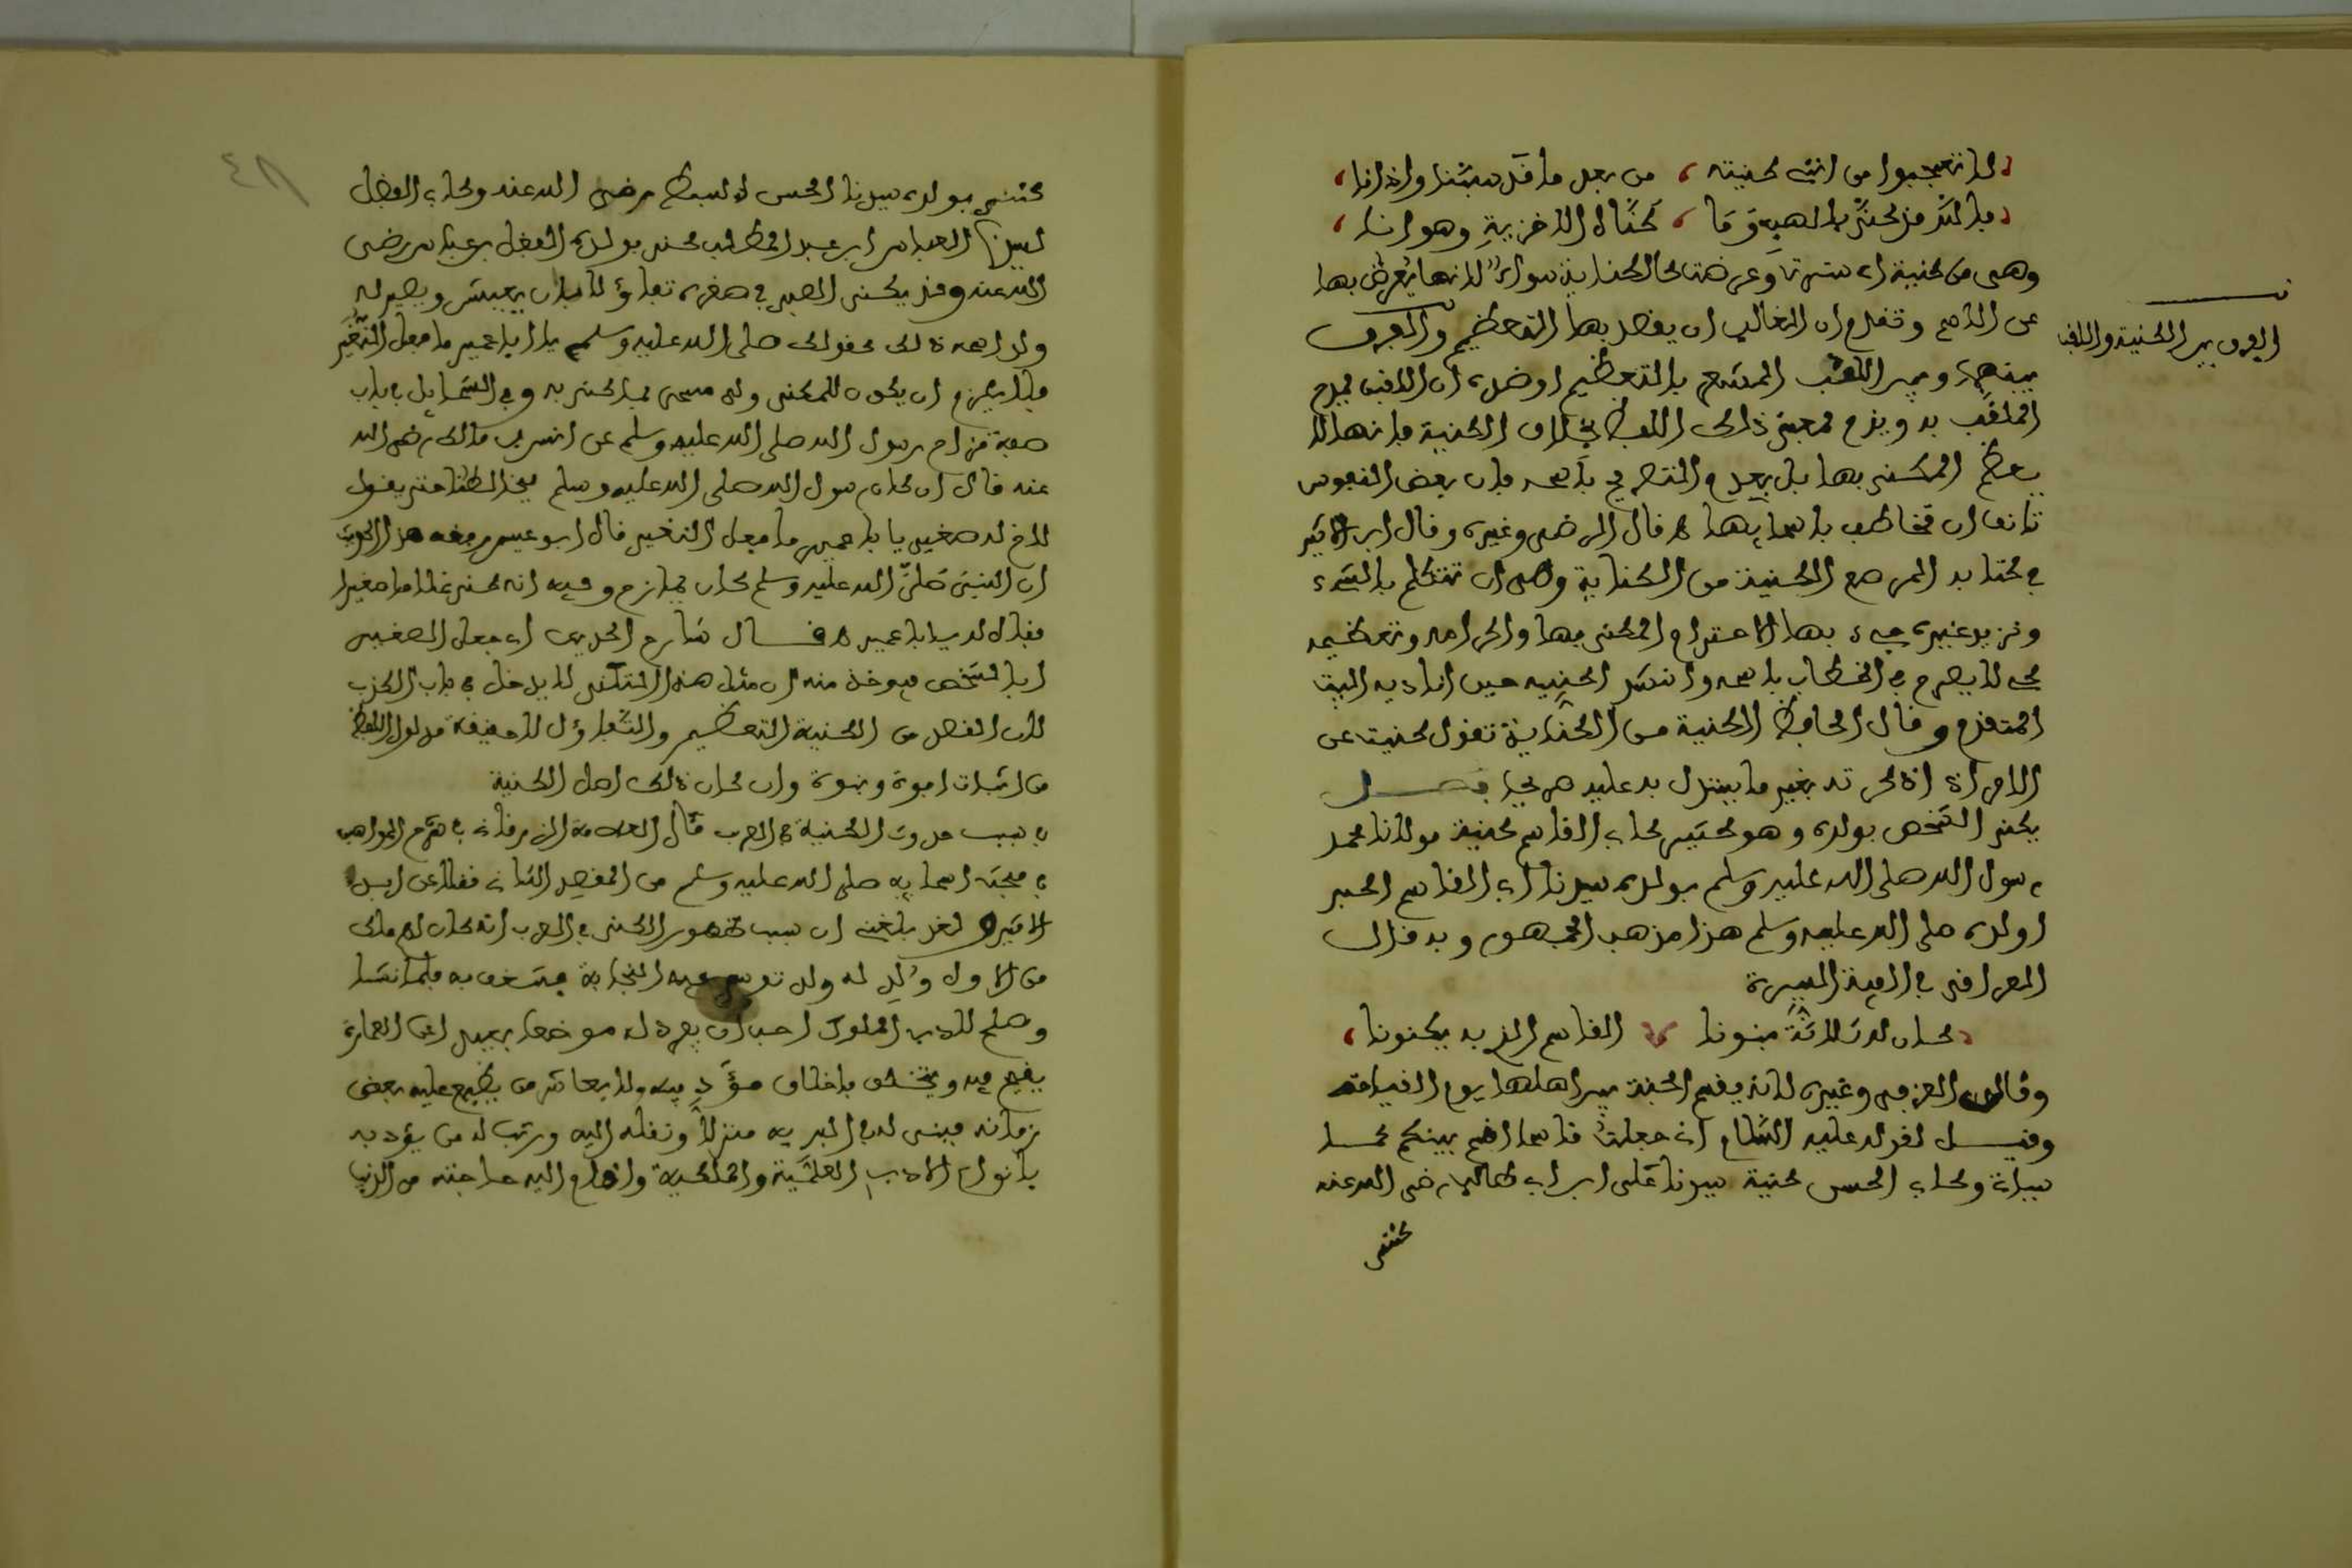 لا تعجبوا من انني كنيته من بعد ما قد سبنا واذانا
فالله قد كنى بالهبه وما كناه الا خزية وهوانا
وهي من كنية اي سترت وعرضت كالكناية سواء لانها يعرض بها
عن الاسم وتقدم ان الغالب ان يقصد بها التعظيم والفرق
الفرق بين الكنية واللقب
بينها وبين اللقب المشعر بالتعظيم اوضده ان اللقب يمدح
الملقب به ويذم بمعنى ذلك اللفظ بخلاف الكنية فانها لا
يعظم المكنى بها بل بعدم التصريح باسمه فان بعض النفوس
تانف ان تخاطب باسمايها قال الرضى وغيره وقال ابن الاثير
في كتابه المرصع الكنية من الكناية وهي ان تتكلم بالشيء
وتريد غيره جيء بها لاحترام المكنى بها واكرامه وتعظيمه
كي لا يصرح في الخطاب باسمه وانشد اكنيه حين اناديه البيت
المتقدم وقال الحافظ الكنية من الكناية تقول كنيت عن
الامر اذا ذكرته بغير ما يستدل به عليه صريحا فصل
يكنى الشخص بولده وهو كثير كابي القاسم كنية مولانا محمد
رسول الله صلى الله عليه وسلم بولده سيدنا ابي القاسم اكبر
اولاده صلى الله عليه وسلم هذا مذهب الجمهور وبه قال
العراقي في الفية السيرة
كان له ثلاثة بنونا القاسم الذي به يكنونا
وقال العزفي وغيره لانه يقسم الجنة بين اهلها يوم القيامة
وقيل لقوله عليه السلام اني جعلت قاسما اقسم بينكم كما
سياتي وكابي الحسن كنية سيدنا علي ابن ابي طالب رضي الله عنه
كني
كني بولده سيدنا الحسن السبط رضي الله عنه وكابي الفضل
لسيدنا العباس ابن عبد المطلب كني بولده الفضل بن عباس رضي
الله عنه وقد يكنى الصبي في صغره تفاؤلا بان يعيش ويصير له
ولد اسمه ذلك كقوله صلى الله عليه وسلم يا ابا عمير ما فعل النغير
فلا يلزم ان يكون للمكنى ولد مسمى بما كني به وفي الشمايل في باب
صفة مزاح رسول الله صلى الله عليه وسلم عن انس بن مالك رضي الله
عنه قال ان كان رسول الله صلى الله عليه وسلم ليخالطنا حتى يقول
لاخ لي صغير يا ابا عمير ما فعل النغير قال ابو عيسى وفقه هذا الحديث
ان النبي صلى الله عليه وسلم كان يمازح وفيه انه كنى غلاما صغيرا
فقال له يا ابا عمير قال شارح الحديث اي جعل الصغير
ابا لشخص فيوخذ منه ان مثل هذا التكني لا يدخل في باب الكذب
لان القصد من الكنية التعظيم والتفاؤل لا حقيقة مدلول اللفظ
من اثبات ابوة وبنوة وان كان ذلك اصل الكنية
سبب حدوث الكنية في العرب قال العلامة الزرقاني في شرح المواهب
في مبحث اسمايه صلى الله عليه وسلم من المقصد الثاني نقلا عن ابن
الاثير لقد بلغني ان سبب ظهور الكنى في العرب انه كان لهم ملك
من الاول ولد له ولد توسم فيه النجابة فشغف به فلما نشا
وصلح لادب الملوك احب ان يفرد له موضعا بعيدا عن العمارة
يقيم فيه ويتخلق باخلاق مؤدبيه ولا يعاشر من يضيع عليه بعض
زمانه فبنى له في البرية منزلا ونقله اليه ورتب له من يؤدبه
بانواع الاداب العلمية والملكية واقام اليه حاجته من الدنيا
٤٨